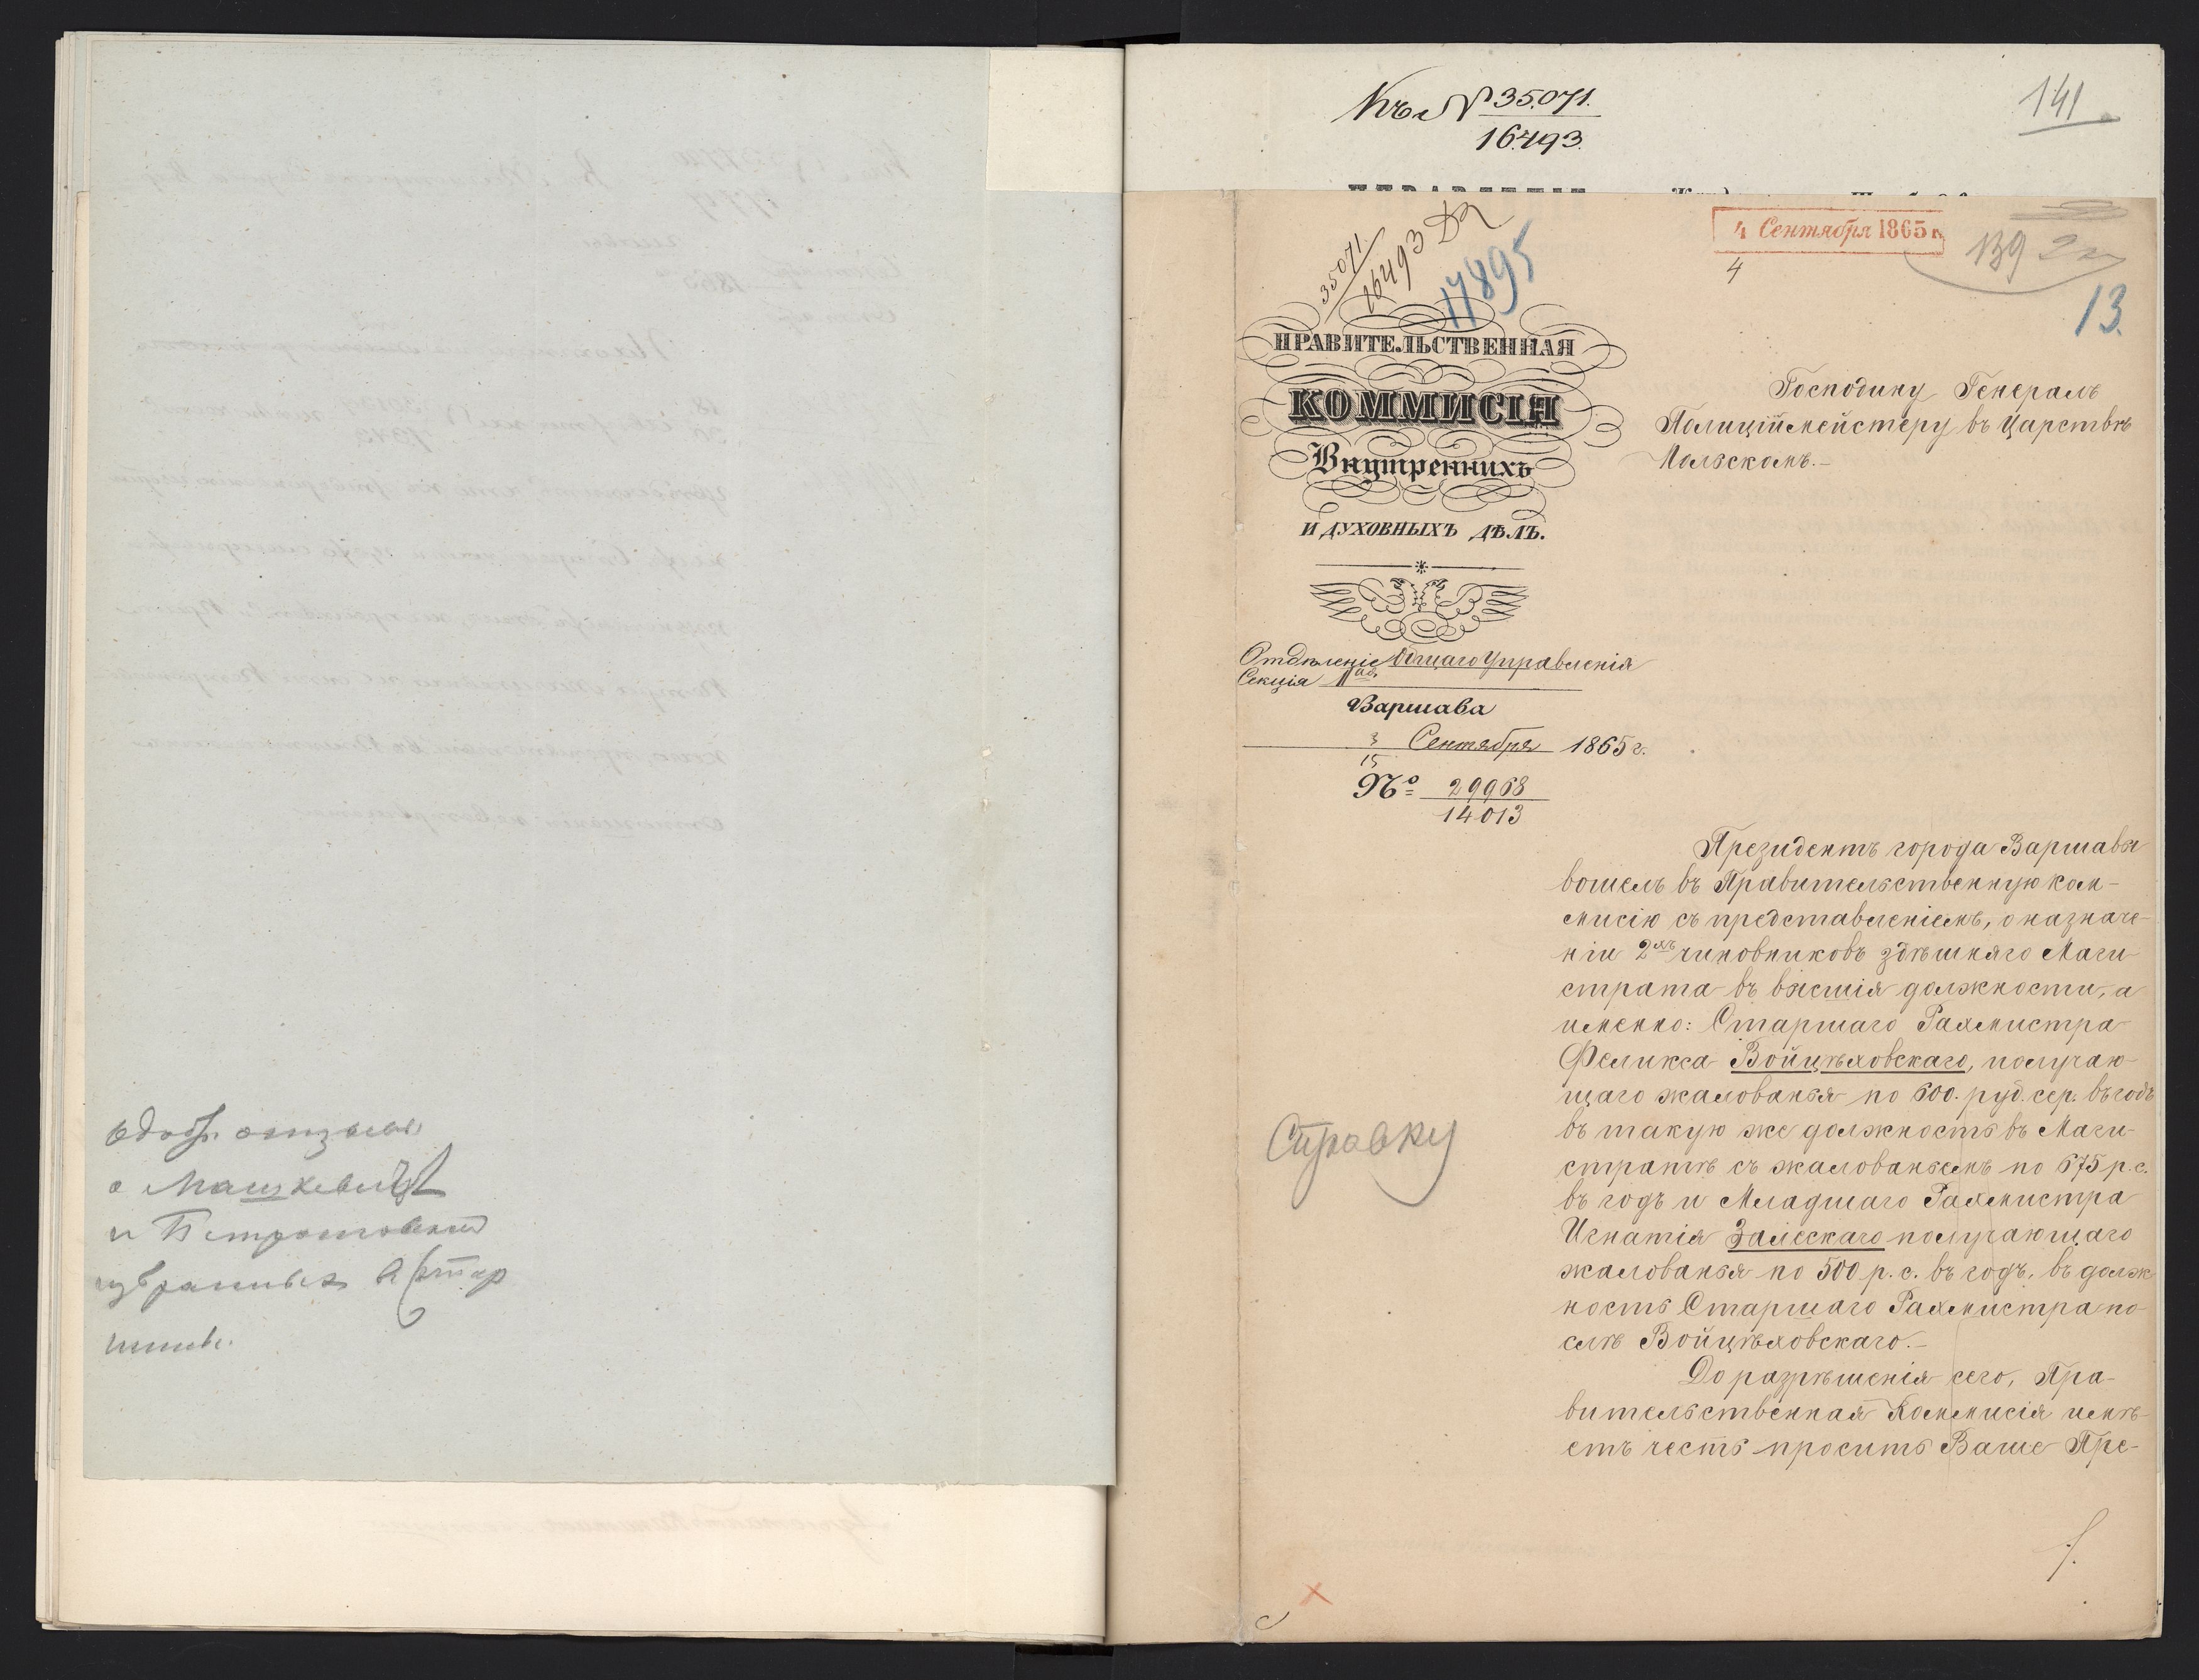 о Машкевичѣ
Къ № 35.071.
16.493.
141
35071
16493
17895
4 Сентября 1865 г.
4
139
13.
ПРАВИТЕЛЬСТВЕННАЯ
КОММИСІЯ
Внутреннихъ
И ДУХОВНЫХЪ ДѢЛЪ.
Отдѣленіе Общаго Управленія
Секція II
Варшава
3/15 Сентября 1865 г.
№ 29968
14013
Господину Генералъ
Полицiймейстеру въ Царствѣ
Польскомъ.-
Президентъ города Варшавы
вошелъ въ Правительственную ком-
мисію съ представленіемъ, о назначе-
ніи 2хъ чиновниковъ здѣшняго Маги-
страта въ высшія должности, а
именно: Старшаго Рахмистра
Феликса Войцѣховскаго, получаю-
щаго жалованья по 600. руб. сер. въ годъ
въ такую же должность въ Маги-
стратѣ съ жалованьемъ по 675 р. с.
въ годъ и Младшаго Рахмистра
Игнатія Залескаго получающаго
жалованья по 500 р. с. въ годъ, въ долж
ность Старшаго Рахмистра по-
слѣ Войцѣховскаго.-
До разрѣшенія сего, Пра-
вительственная Коммисія имѣ-
етъ честь просить Ваше Пре-
Справку